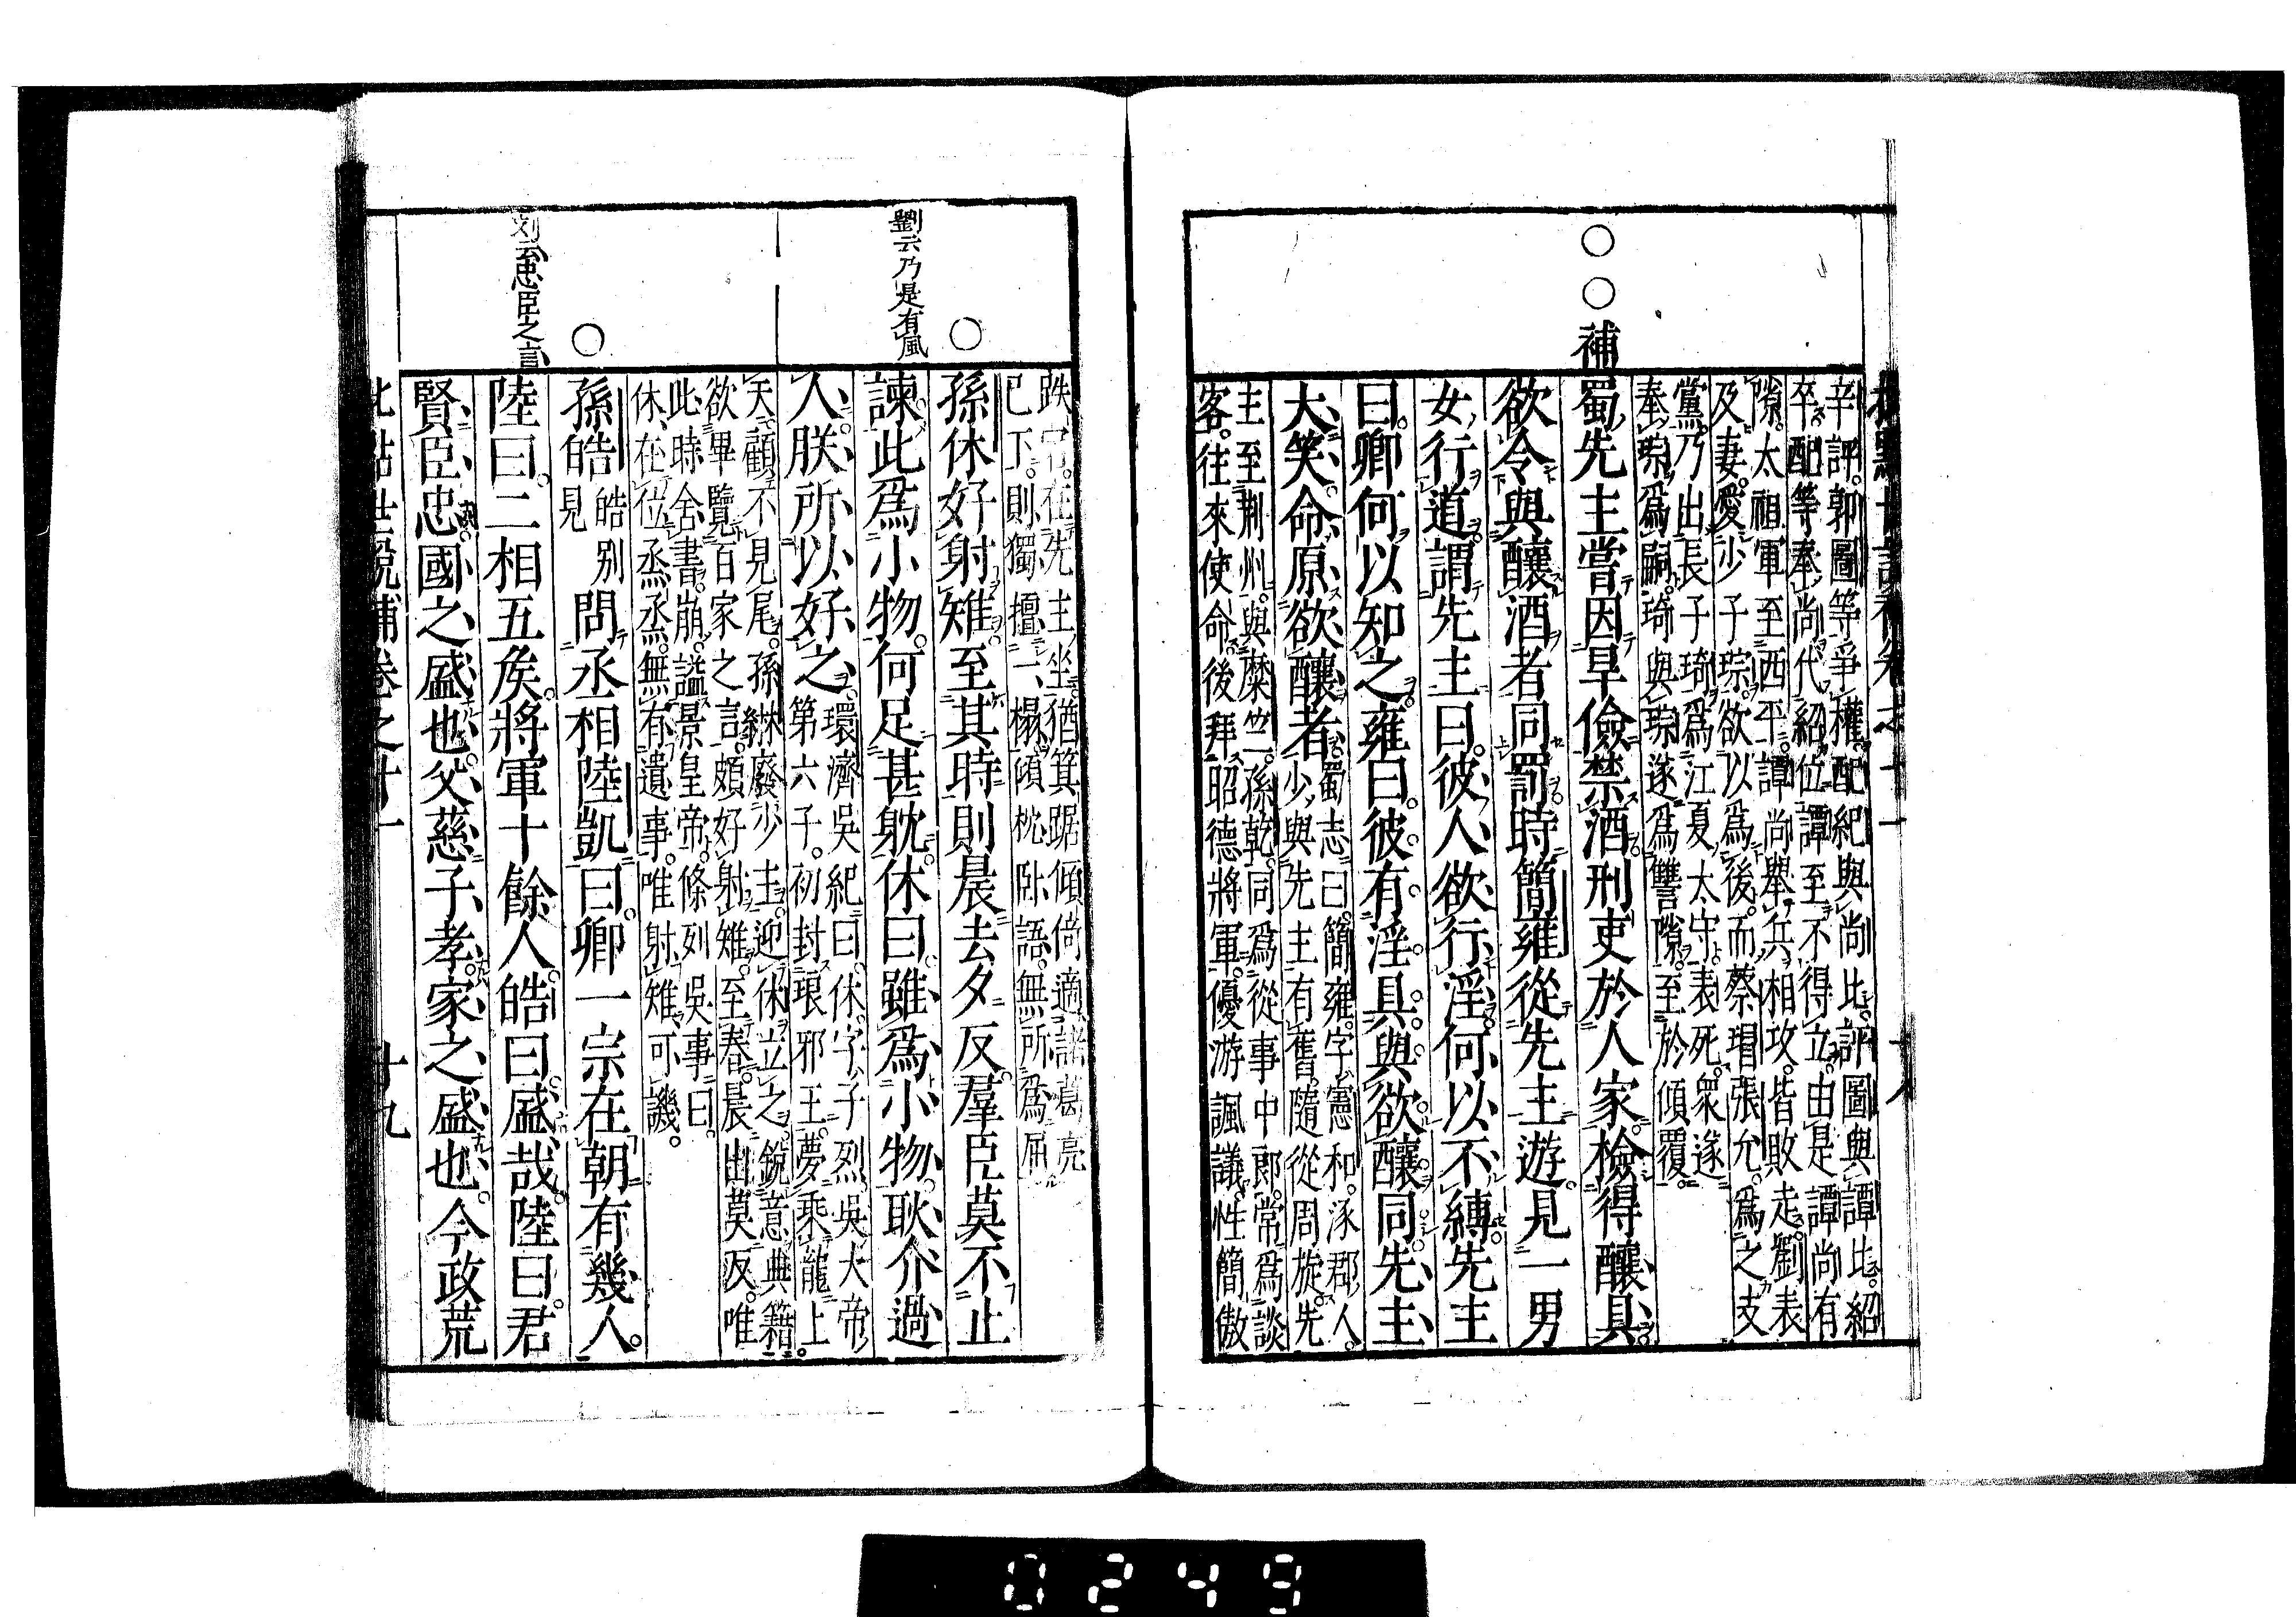 辛評郭圖等爭權配紀與尚比評圖與譚比紹
卒配等奉尚代紹位譚至不得立由是譚尚有
隙太祖軍至西平譚尚舉兵相攻皆敗走劉表
及妻愛少子琮欲以為後而蔡瑁張允為之支
黨乃出長子琦為江夏太守表死衆遂
奉琮為嗣琦與琮遂為讐隙至於傾覆
○○補
蜀先主嘗因旱儉禁酒刑吏於人家檢得釀具
欲令與釀酒者同罰時簡雍從先主遊見一男
女行道謂先主曰彼人欲行淫何以不縛先主
曰卿何以知之雍曰彼有淫具與欲釀同先主
大笑命原欲釀者
蜀志曰簡雍字憲和涿郡人
少與先主有舊隨從周旋先
主至荆州與麋竺孫乾同為從事中郎常為談
客往來使命後拜昭德將軍優游諷議性簡傲
跌宕在先主坐猶箕踞傾倚適諸葛亮
已下則獨擅一榻傾枕卧語無所為屈
○
孫休好射雉至其時則晨去夕反羣臣莫不止
劉云乃是有風
諫此為小物何足甚躭休曰雖為小物耿介過
人朕所以好之
環濟吳紀曰休字子烈吳大帝
第六子初封琅邪王夢乘龍上
天顧不見尾孫綝廢少主迎休立之銳意典籍
欲畢覽百家之言頗好射雉至春晨出莫反唯
此時舍書崩謚景皇帝條列吳事曰
休在位烝烝無有遺事唯射雉可譏
○
孫皓
皓別
見
問丞相陸凱曰卿一宗在朝有幾人
刘云忠臣之言
陸曰二相五矦將軍十餘人皓曰盛哉陸曰君
賢臣忠國之盛也父慈子孝家之盛也今政荒
世說補卷之十一 十九